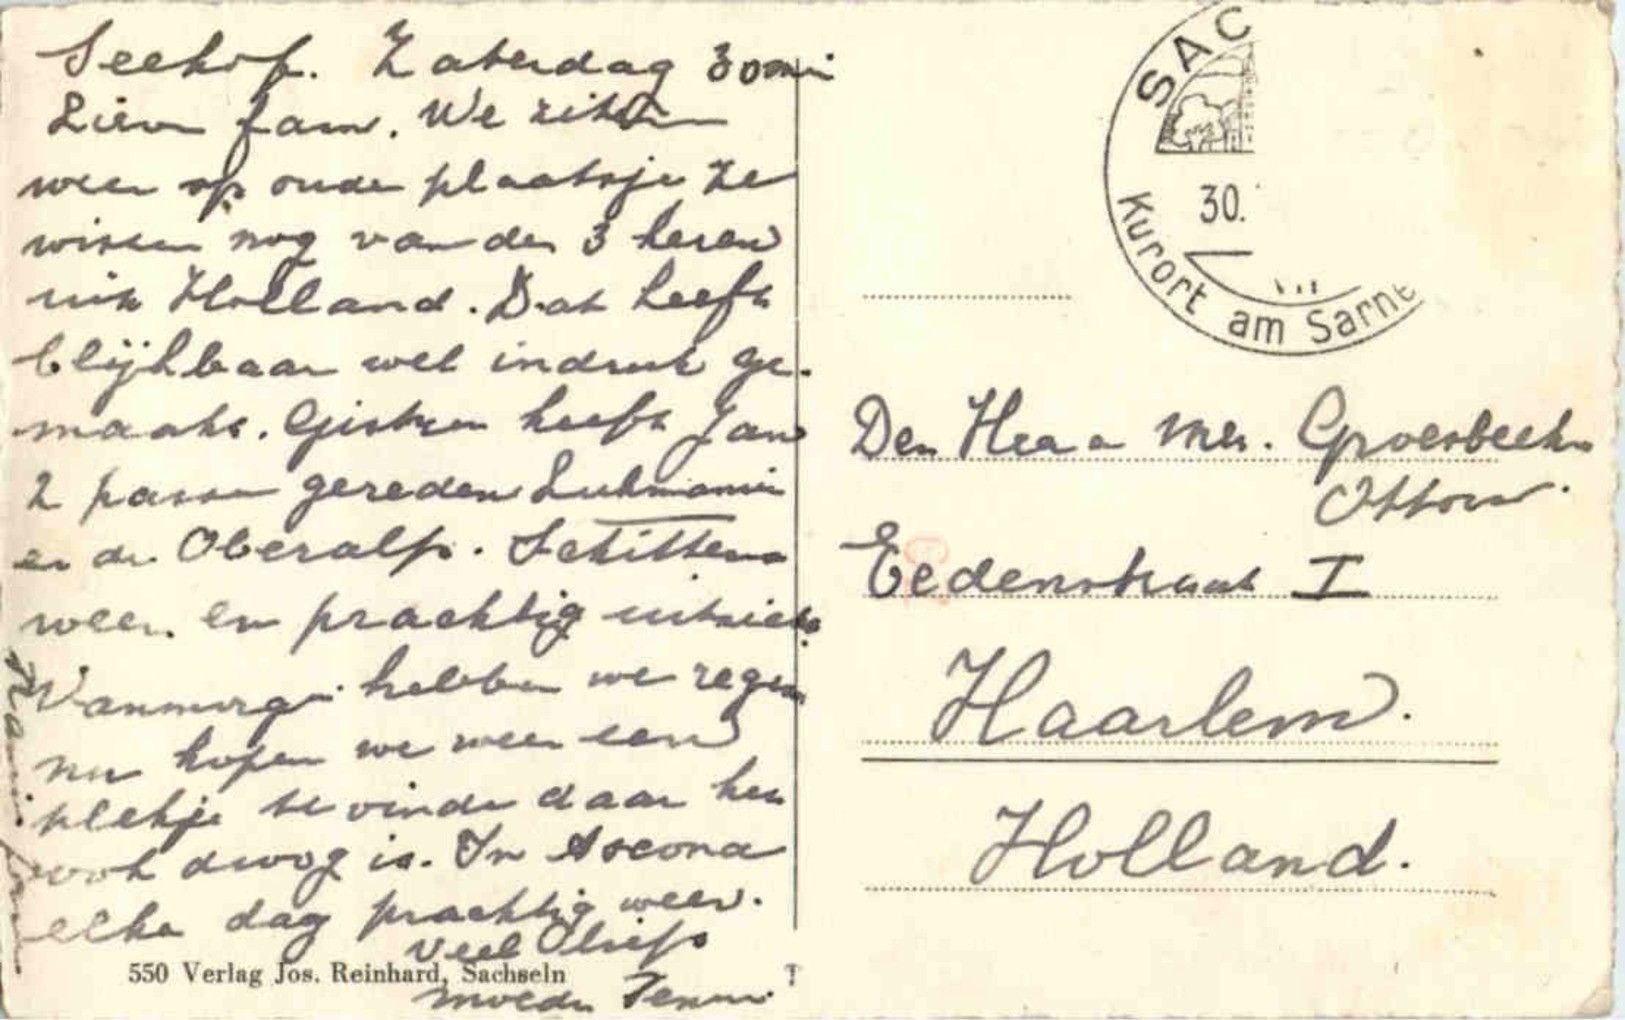 Seehof. Zaterdag 30 mei
Lieve fam. We zitten
weer op oude plaatsje Ze
wisten nog van de 3 heren
uit Holland. Dat heeft
blijkbaar wel indruk ge-
maakt. Gisteren heeft Jan
2 passen gereden Lukmanier
en de Oberalp. Schitterend
weer en prachtig uitzicht.
Vanmorgen hebben we regen
nu hopen we weer een
plekje te vinden daar het
ook droog is. In Ascona
elke dag prachtig weer.
Veel liefs
moeder
550 Verlag Jos. Reinhard, Sachseln
SAC
30.
Kurort am Sarne
Den Heer en Mev. Groesbeek
Ottow.
Eedenstraat I
Haarlem.
Holland.